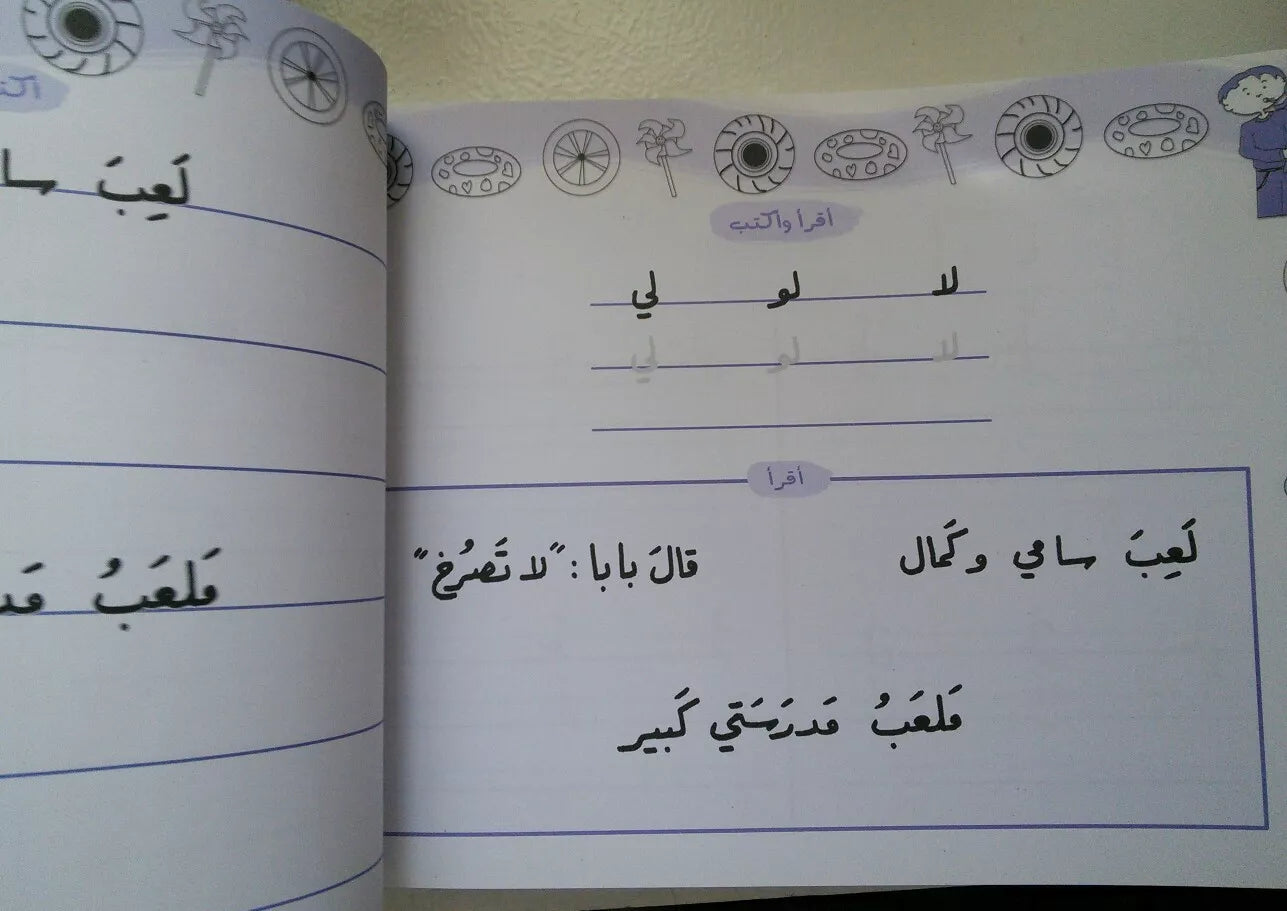 أقرأ وأكتب
لا لو لي
لا لو لي
أقرأ
لَعِبَ سامي وكَمال
قالَ بابا: "لا تَصرُخ"
مَلعَبُ مَدرَسَتي كَبير
لَعِبَ
مَلعَبُ